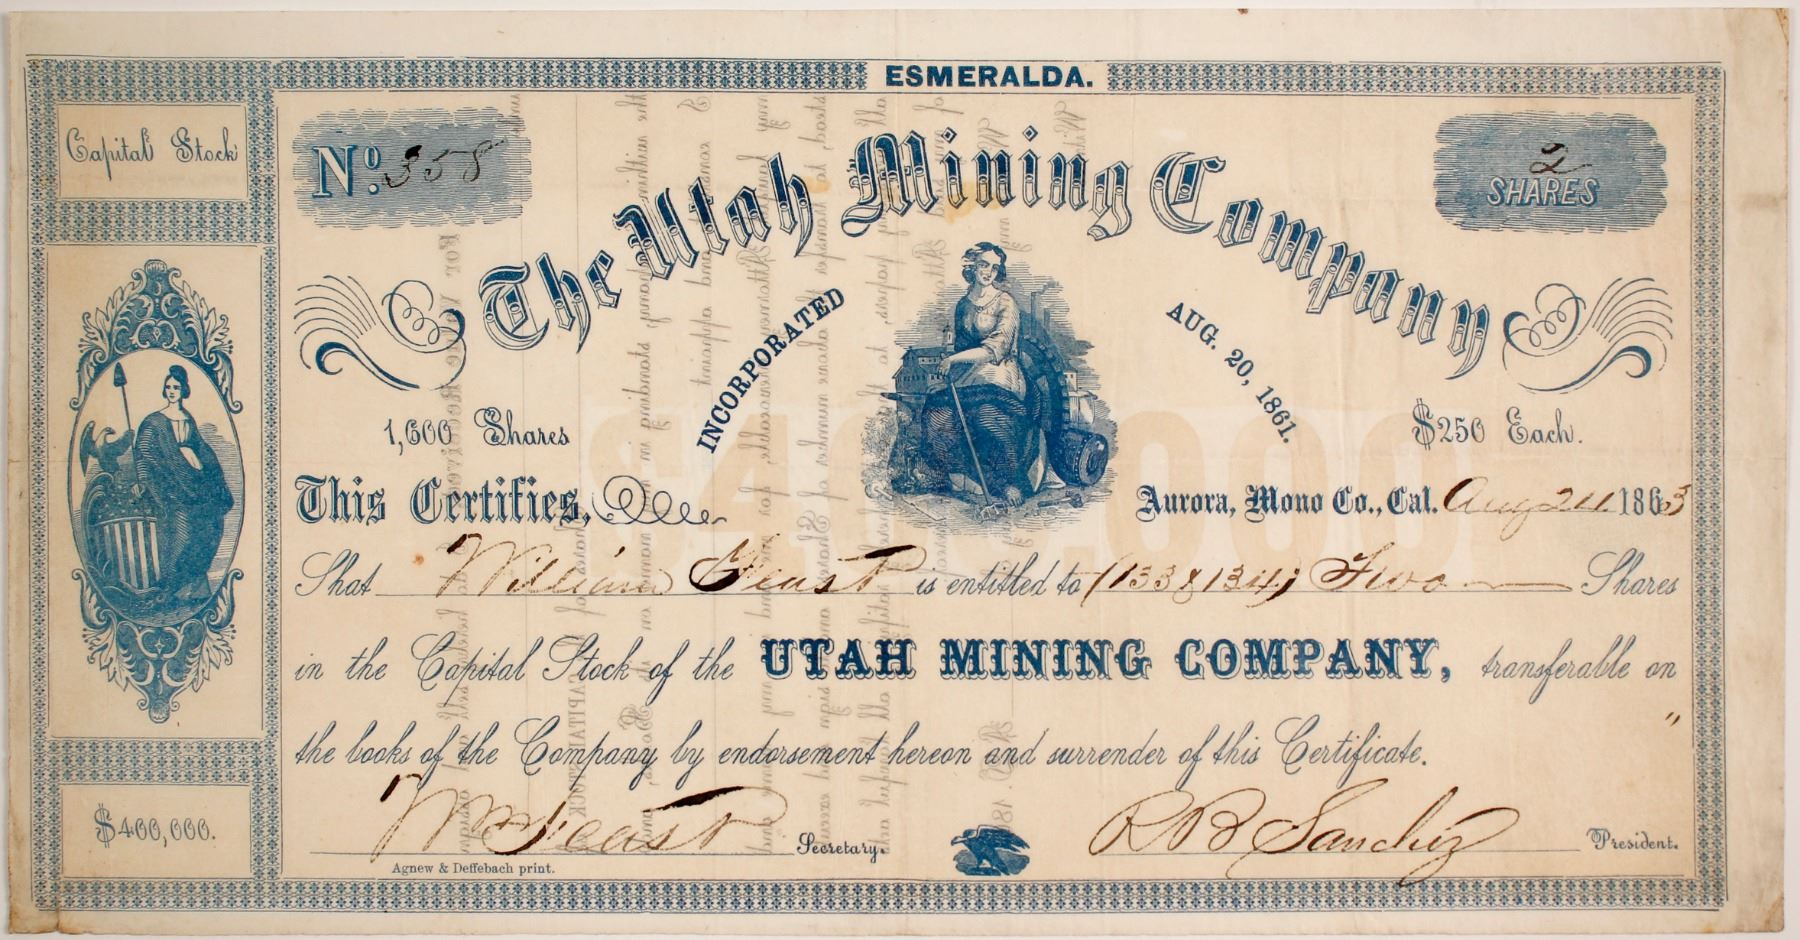 ESMERALDA.
Capital Stock
No. 358
2
SHARES
The Utah Mining Company
INCORPORATED AUG. 20, 1861.
1,600 Shares
$250 Each.
$400,000
This Certifies,
Aurora, Mono Co., Cal. Aug 24 1863
That William Feast is entitled to (133 & 134) Two Shares
in the Capital Stock of the UTAH MINING COMPANY, transferable on
the books of the Company by endorsement hereon and surrender of this Certificate.
$400,000.
Wm Feast Secretary.
R B Sanchez President.
Agnew & Deffebach print.